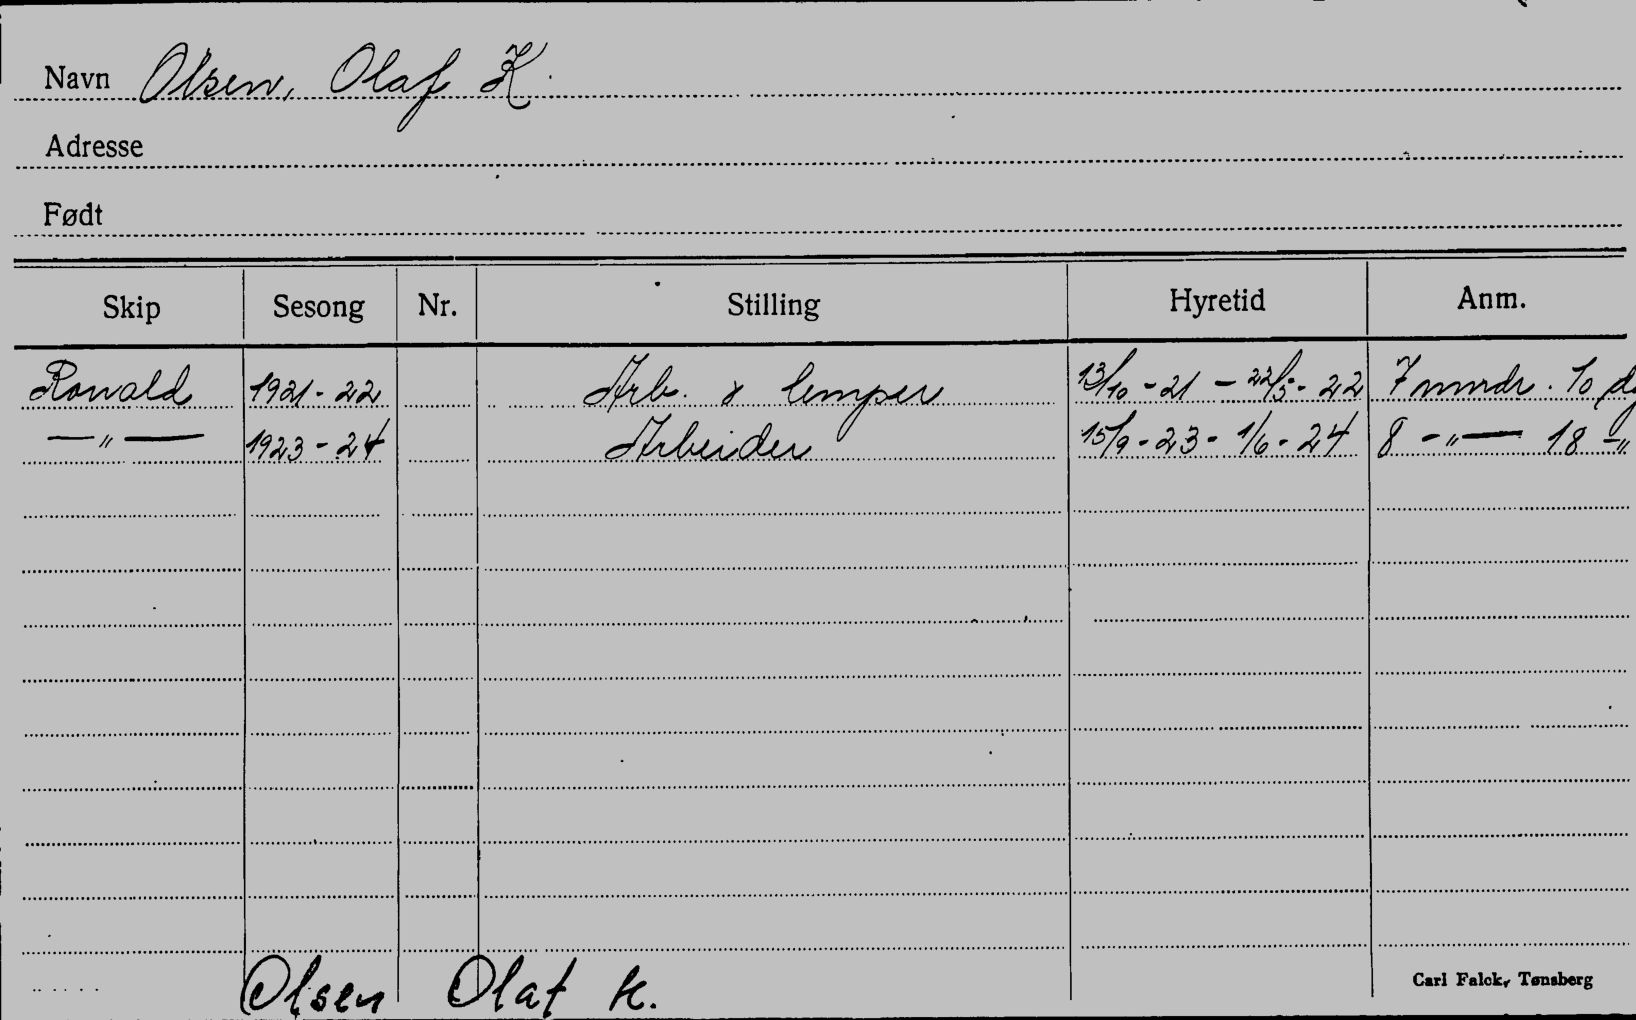 Navn Olsen, Olaf K.
Adresse
Født
Skip Sesong Nr. Stilling Hyretid Anm.
Ronald 1921-22 Arb. & lemper 13/10-21 - 22/5-22 7 mndr. 10 dg
—"— 1923-24 Arbeider 15/9-23 - 1/6-24 8 -"— 18 -"
Olsen Olaf K.
Carl Falck, Tønsberg